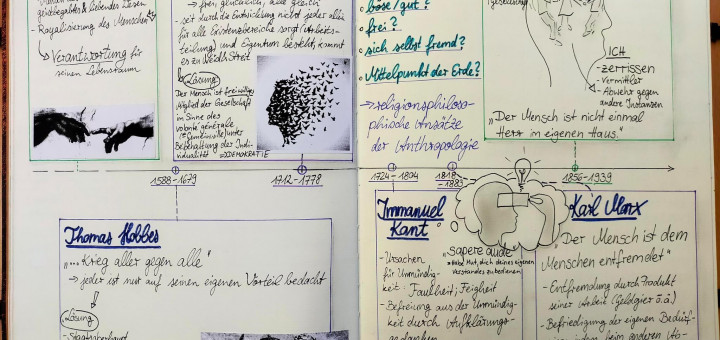 geistbegabtes & liebendes Wesen
- Royalisierung des Menschen
↳ Verantwortung für
seinen Lebensraum
frei, glücklich, alle gleich
- seit durch die Entwicklung nicht jeder allein
für alle Existenzbereiche sorgt (Arbeits-
teilung) und Eigentum besteht kommt
es zu Neid & Streit
Lösung
Der Mensch ist freiwilliges
Mitglied der Gesellschaft
im Sinne des
volonté générale
(=Gemeinwille) unter
Beibehaltung der Indi-
vidualität ⇒ DEMOKRATIE
böse/gut?
frei?
sich selbst fremd?
Mittelpunkt der Erde?
→ religionsphiloso-
phische Ansätze
der Anthropologie
ICH
- zerrissen
- Vermittler
- Abwehr gegen
andere Instanzen
"Der Mensch ist nicht einmal
Herr im eigenen Haus."
1588-1679
1712-1778
1724-1804
1818-
1883
1856-1939
Thomas Hobbes
"... Krieg aller gegen alle"
→ jeder ist nur auf seinen eigenen Vorteil bedacht
Lösung
- Staatsoberhaupt
Immanuel
Kant
"sapere aude"
=Habe Mut, dich deines eigenen
Verstandes zu bedienen
- Ursachen
für Unmündig-
keit: Faulheit; Feigheit
- Befreiung aus der Unmündig-
keit durch Aufklärungs-
gedanken
Karl Marx
"Der Mensch ist dem
Menschen entfremdet"
- Entfremdung durch Produkt
seiner Arbeit (Geldgier o.ä.)
- Befriedigung der eigenen Bedürf-
beim anderen